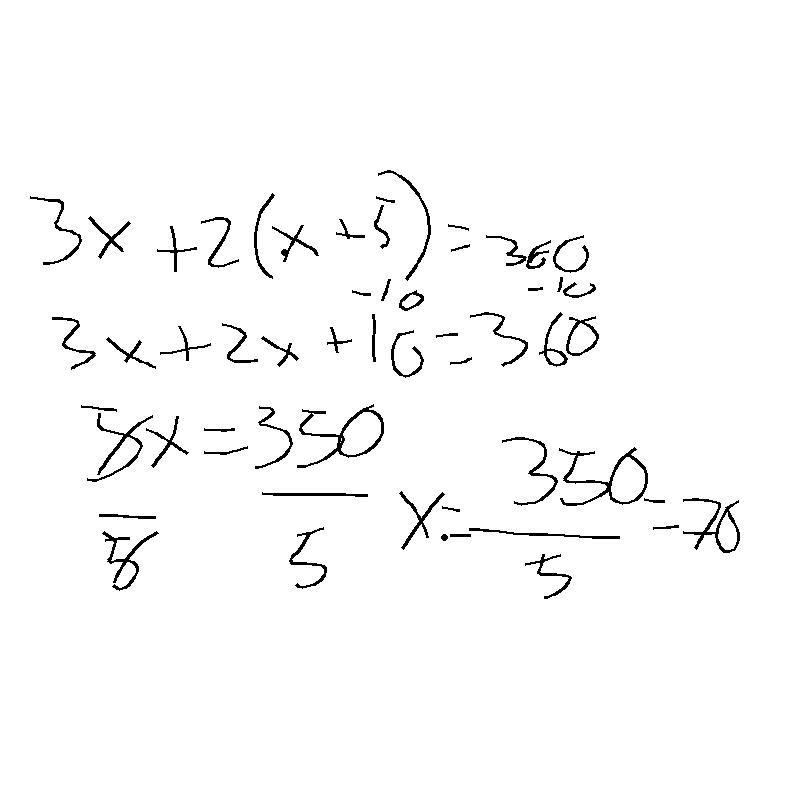 3x + 2(x + 5) = 360
-10 -10
3x + 2x + 10 = 360
5x = 350
5 5
x = 350/5 = 70